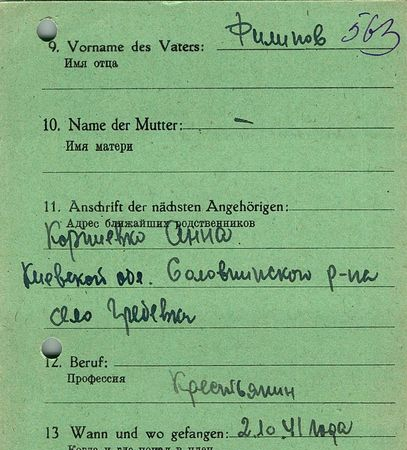 563
9. Vorname des Vaters: Филипов
Имя отца
10. Name der Mutter: —
Имя матери
11. Anschrift der nächsten Angehörigen:
Адрес ближайших родственников
Анна
Киевской обл. р-на
село Гребевка
12. Beruf:
Профессия
Крестьянин
13 Wann und wo gefangen: 2.10.41 года
Когда и где попал в плен